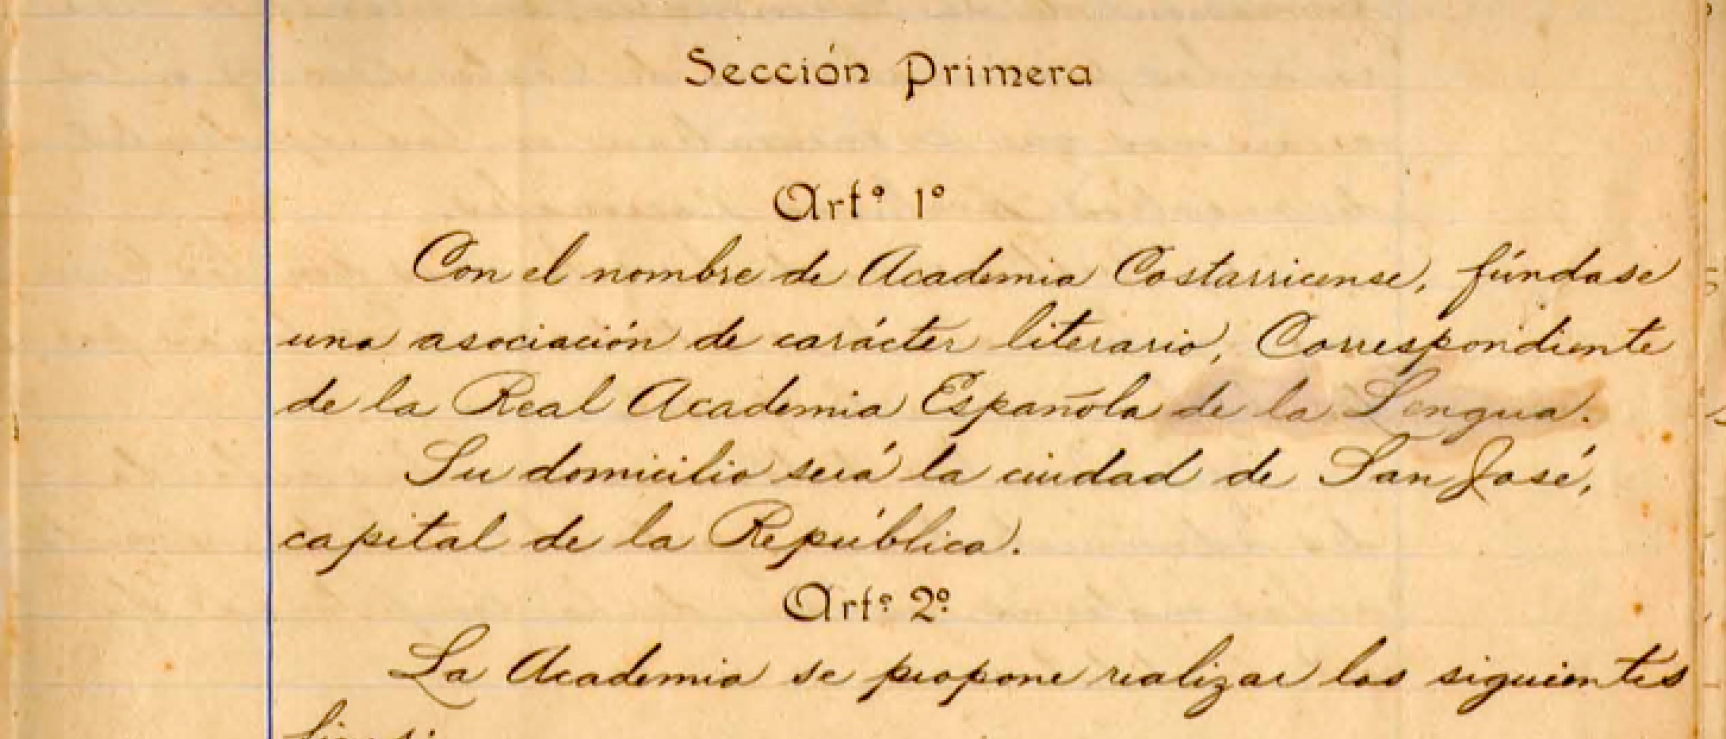 Sección Primera
Artº 1º
Con el nombre de Academia Costarricense, fúndase
una asociación de carácter literario, Correspondiente
de la Real Academia Española de la Lengua.
Su domicilio será la ciudad de San José,
capital de la República.
Artº 2º
La Academia se propone realizar los siguientes
fines: